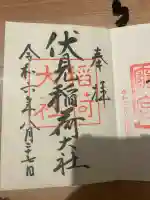 奉拝
伏見稲荷大社
令和六年八月二十七日
稲荷
大社